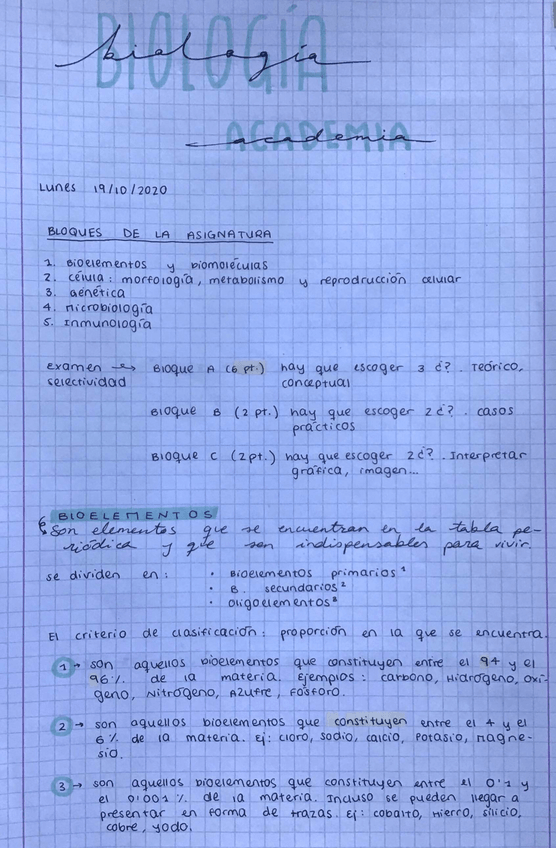 BIOLOGÍA
biología
ACADEMIA
academia
Lunes 19/10/2020
BLOQUES DE LA ASIGNATURA
1. Bioelementos y biomoléculas
2. célula: morfología, metabolismo y reproducción celular
3. Genética
4. Microbiología
5. Inmunología
examen → Bloque A (6 pt.) hay que escoger 3 ¿?. Teórico,
selectividad conceptual
Bloque B (2 pt.) hay que escoger 2 ¿?. casos
prácticos
Bloque C (2pt.) hay que escoger 2 ¿?. Interpretar
gráfica, imagen...
BIOELEMENTOS
Son elementos que se encuentran en la tabla pe-
riódica y que son indispensables para vivir.
se dividen en: • Bioelementos primarios ¹
• B. secundarios ²
• Oligoelementos ³
El criterio de clasificación: proporción en la que se encuentra.
1 → son aquellos bioelementos que constituyen entre el 94 y el
96% de la materia. Ejemplos: carbono, Hidrógeno, oxí-
geno, Nitrógeno, Azufre, Fósforo.
2 → son aquellos bioelementos que constituyen entre el 4 y el
6% de la materia. Ej: cloro, sodio, calcio, Potasio, Magne-
sio.
3 → son aquellos bioelementos que constituyen entre el 0'1 y
el 0'001% de la materia. Incluso se pueden llegar a
presentar en forma de trazas. Ej: cobalto, Hierro, silicio,
cobre, yodo.